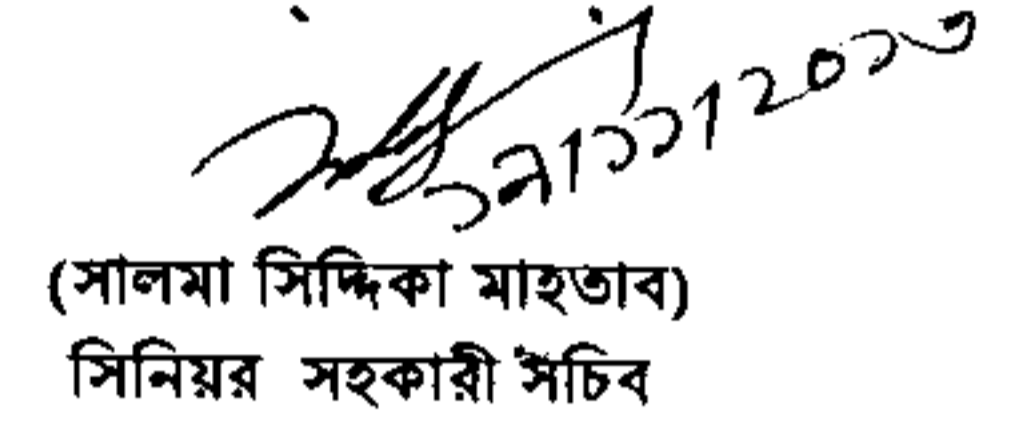 ১৯/১১/২০১৩
(সালমা সিদ্দিকা মাহতাব)
সিনিয়র সহকারী সচিব